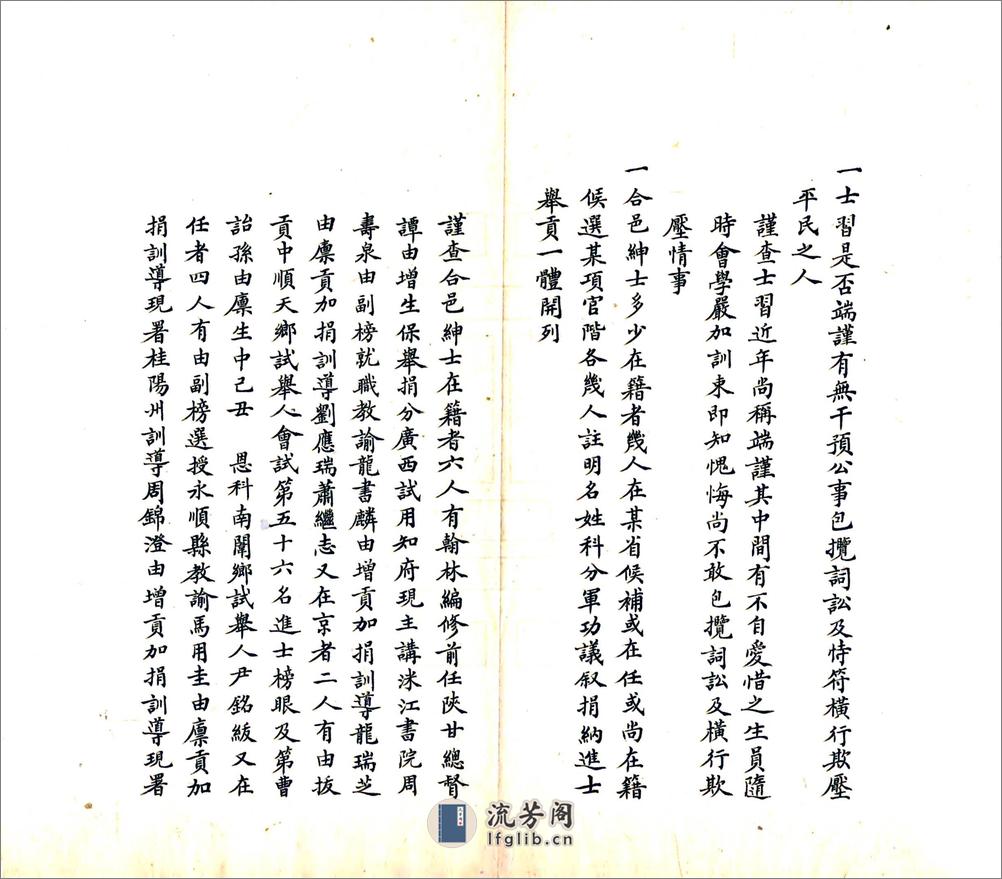 一士習是否端謹有無干預公事包攬詞訟及恃符橫行欺壓
平民之人
謹查士習近年尚稱端謹其中間有不自愛惜之生員隨
時會學嚴加訓束即知愧悔尚不敢包攬詞訟及橫行欺
壓情事
一合邑紳士多少在籍者幾人在某省候補或在任或尚在籍
候選某項官階各幾人註明名姓科分軍功議叙捐納進士
舉貢一體開列
謹查合邑紳士在籍者六人有翰林編修前任陝甘總督
譚由增生保舉捐分廣西試用知府現主講洣江書院周
壽泉由副榜就職教諭龍書麟由增貢加捐訓導龍瑞芝
由廩貢加捐訓導劉應瑞蕭繼志又在京者二人有由拔
貢中順天鄉試舉人會試第五十六名進士榜眼及第曹
詒孫由廩生中己丑 恩科南闈鄉試舉人尹銘紱又在
任者四人有由副榜選授永順縣教諭馬用圭由廩貢加
捐訓導現署桂陽州訓導周錦澄由增貢加捐訓導現署
流芳阁
lfglib.cn